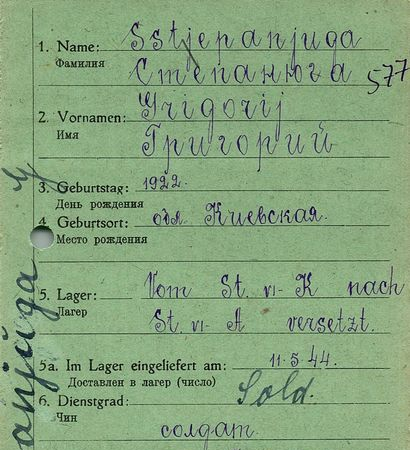 1. Name: Sstjepanjuga
Фамилия Степанюга 577
2. Vornamen: Grigorij
Имя Григорий
3. Geburtstag: 1922.
День рождения
4. Geburtsort: обл. Киевская.
Место рождения
5. Lager: Vom St. VI-K nach
Лагер St. VI-A versetzt.
5a. Im Lager eingeliefert am: 11.5.44.
Доставлен в лагер (число)
6. Dienstgrad: Sold.
Чин
солдат